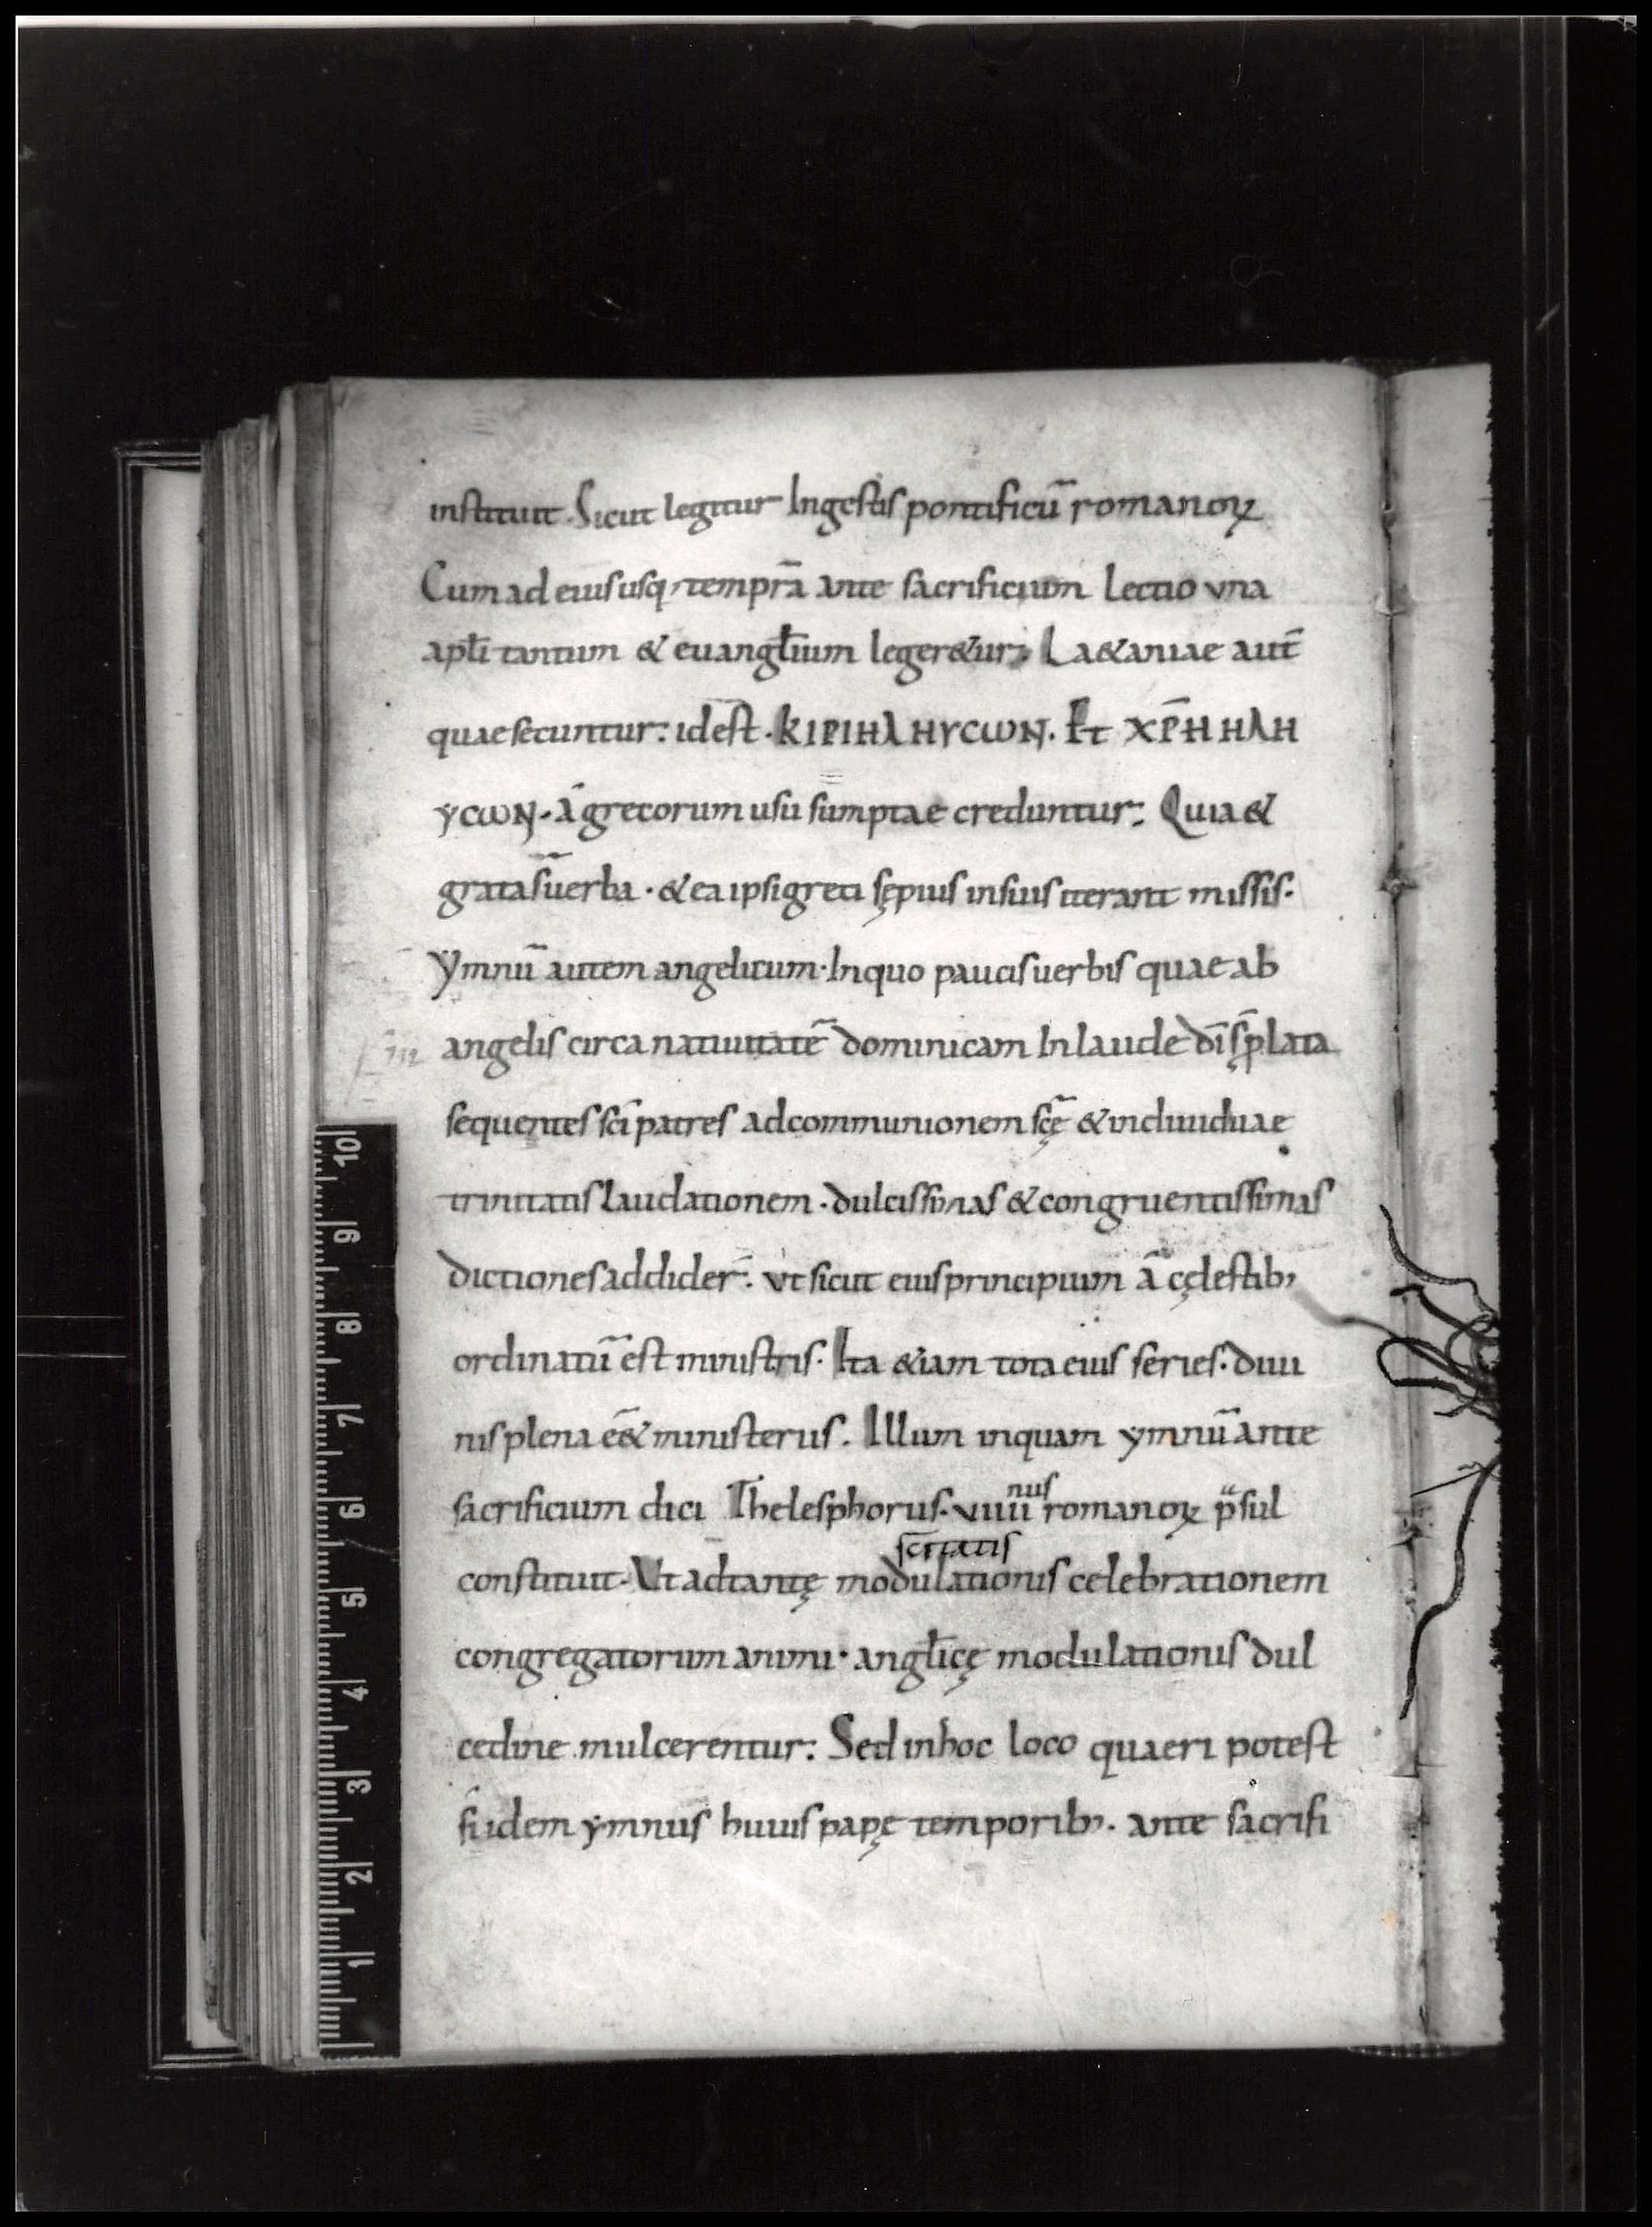 instituit. Sicut legitur In gestis pontificū romanoꝝ
Cum ad eius usq; temp̄rā ante sacrificium lectio una
apłi tantum & euangłium leger&ur; La&aniae aut̄
quae secuntur: id est. KIPIHΛHYCωN. Et XP̄H HΛH
YCωN. ā grecorum usu sumptae creduntur: Quia &
grata s̄ uerba. & ea ipsi greci sępius in suis iterant missis.
Ymnū autem angelicum. In quo paucis uerbis quae ab
angelis circa natiuitatē dominicam In laude dī s̄ ꝓlata
sequentes sc̄i patres ad communionem sc̄ę & indiuiduae
trinitatis laudationem. dulcissimas & congruentissimas
dictiones addider̄. ut sicut eius principium ā cęlestib;
ordinatū est ministris. Ita &iam tota eius series. diui
nis plena ēe& ministeriis. Illum inquam ymnū ante
nus
sacrificium dici Thelesphorus. uiiii romanoꝝ p̄sul
sc̄itatis
constituit. Ut ad tantę modulationis celebrationem
congregatorum animi. angłicę modulationis dul
cedine mulcerentur: Sed in hoc loco quaeri potest
si idem ymnus huius papę temporib;. ante sacrifi
10
9
8
7
6
5
4
3
2
1